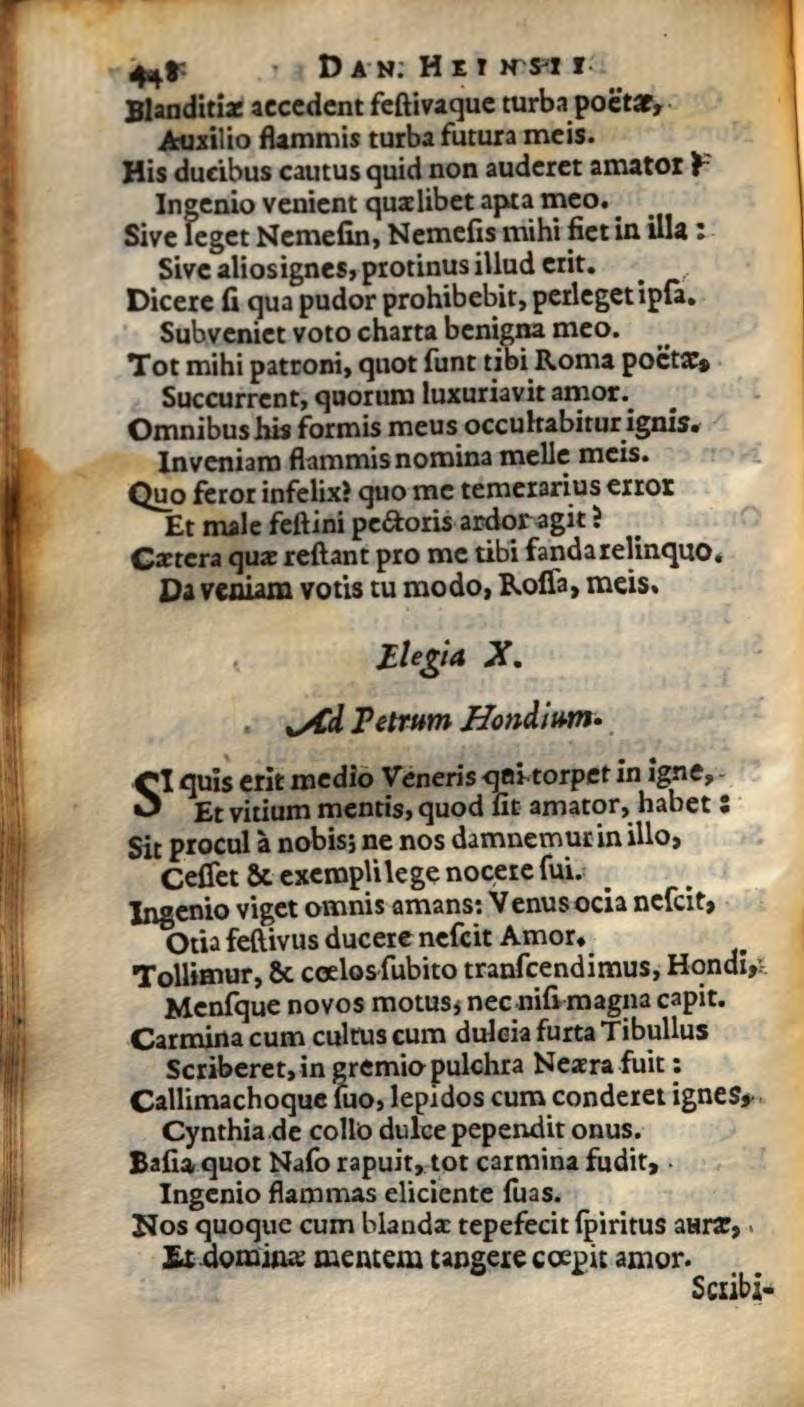 448 DAN. HEINSII
Blanditiæ accedent feſtivaque turba poëtæ,
Auxilio flammis turba futura meis.
His ducibus cautus quid non auderet amator?
Ingenio venient quælibet apta meo.
Sive leget Nemeſin, Nemeſis mihi fiet in illa:
Sive alios ignes, protinus illud erit.
Dicere ſi qua pudor prohibebit, perleget ipſa.
Subveniet voto charta benigna meo.
Tot mihi patroni, quot ſunt tibi Roma poëtæ,
Succurrent, quorum luxuriavit amor.
Omnibus his formis meus occultabitur ignis.
Inveniam flammis nomina melle meis.
Quo feror infelix? quo me temerarius error
Et male feſtini pectoris ardor agit?
Cætera quæ reſtant pro me tibi fanda relinquo.
Da veniam votis tu modo, Roſſa, meis.
Elegia X.
Ad Petrum Hondium.
SI quis erit medio Veneris qui torpet in igne,
Et vitium mentis, quod ſit amator, habet:
Sit procul à nobis; ne nos damnemur in illo,
Ceſſet & exempli lege nocere ſui.
Ingenio viget omnis amans: Venus ocia neſcit,
Otia feſtivus ducere neſcit Amor.
Tollimur, & cœlos ſubito tranſcendimus, Hondi,
Menſque novos motus, nec niſi magna capit.
Carmina cum cultus cum dulcia furta Tibullus
Scriberet, in gremio pulchra Neæra fuit:
Callimachoque ſuo, lepidos cum conderet ignes,
Cynthia de collo dulce pependit onus.
Baſia quot Naſo rapuit, tot carmina fudit,
Ingenio flammas eliciente ſuas.
Nos quoque cum blandæ tepefecit ſpiritus auræ,
Et dominæ mentem tangere cœpit amor.
Scribi-